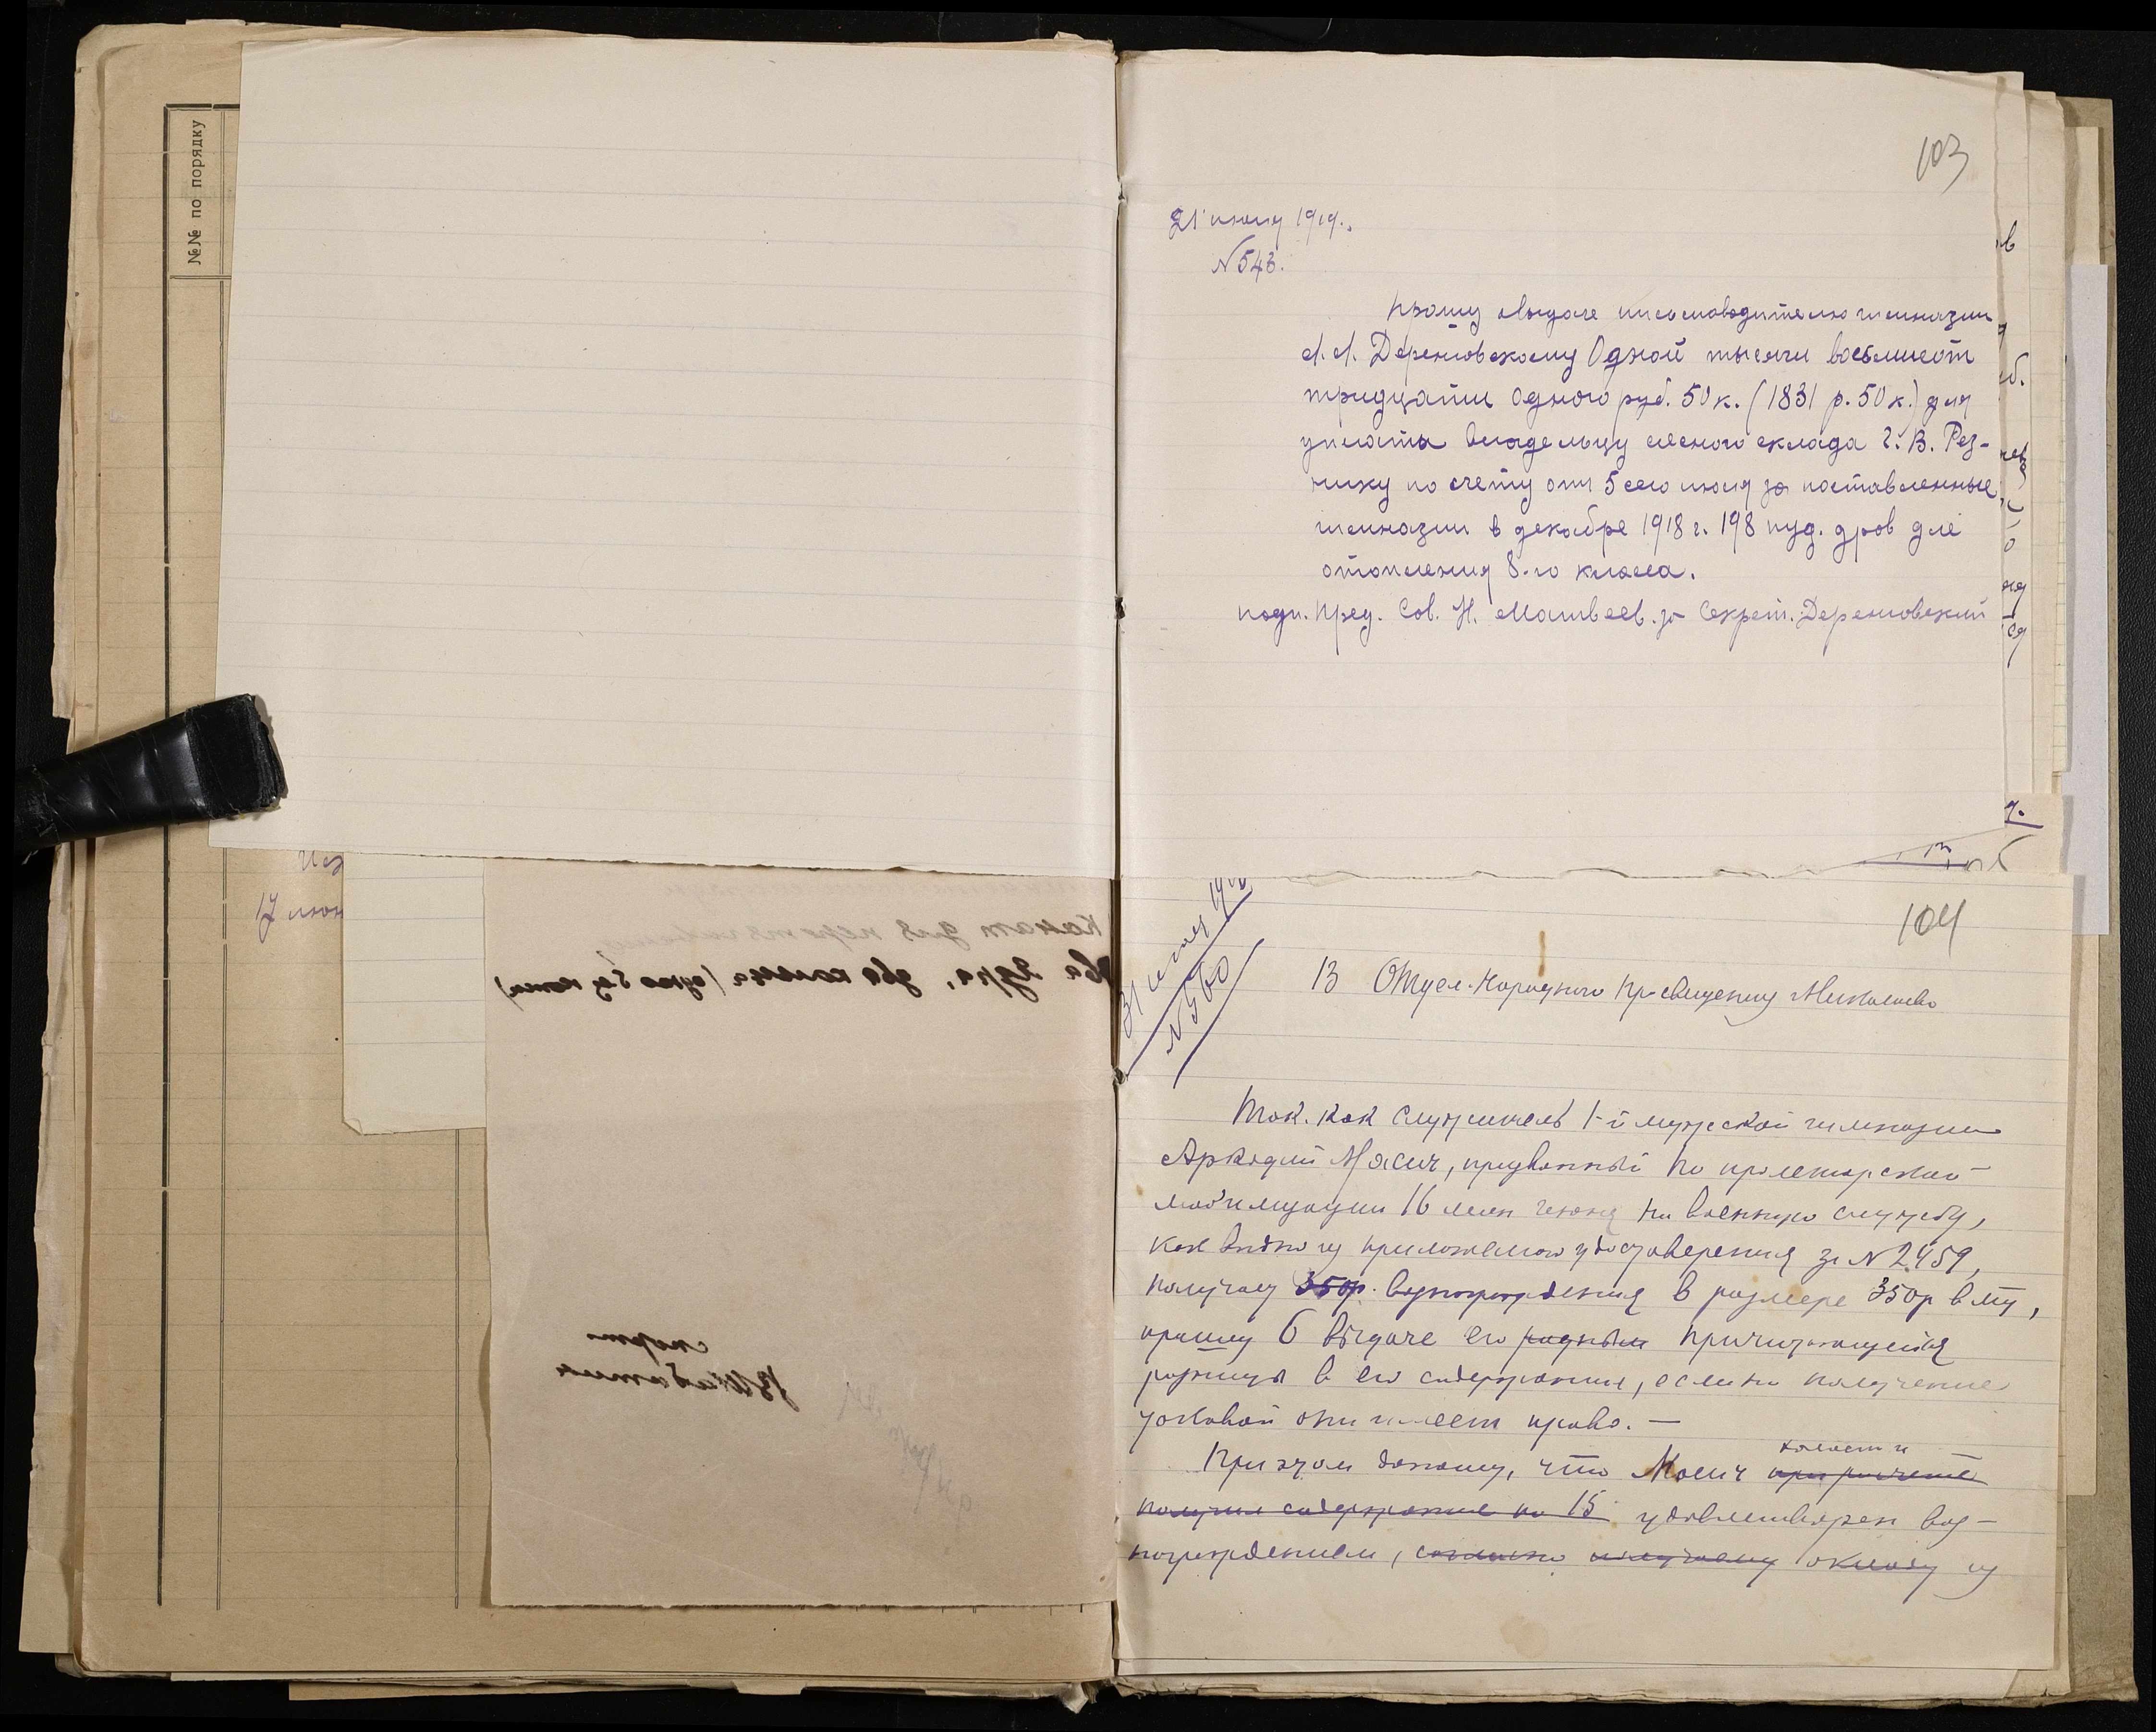 №№ по порядку
17 июн
103
21 июня 1919 г.
№ 543.
Прошу о выдаче письмоводителю гимназии
А. А. Деренговскому Одной тысячи восьмисот
тридцати одного руб. 50 к. (1831 р. 50 к.) для
уплаты владельцу лесного склада Г. В. Рез-
нику по счету от 5 сего июня за поставленные
гимназии в декабре 1918 г. 198 пуд. дров для
отопления 8-го класса.
подп. Пред. Сов. Н. Матвеев. за Секрет. Деренговский
104
№ 560
В Отдел Народного Просвещения Николаева
Так как служитель 1-й мужской гимназии
Аркадий Мясич, призванный по пролетарской
мобилизации 16 июня на военную службу,
как видно из приложенного удостоверения за № 2459,
получал 350р. вознаграждения в размере 350р в м-ц,
прошу о выдаче его родным причитающейся
разницы в его содержании, если на получение
таковой они имеет право. —
При этом доношу, что Мясич при расчете
получил содержание по 15 удовлетворен воз-
награждением, согласно получаемому окладу из